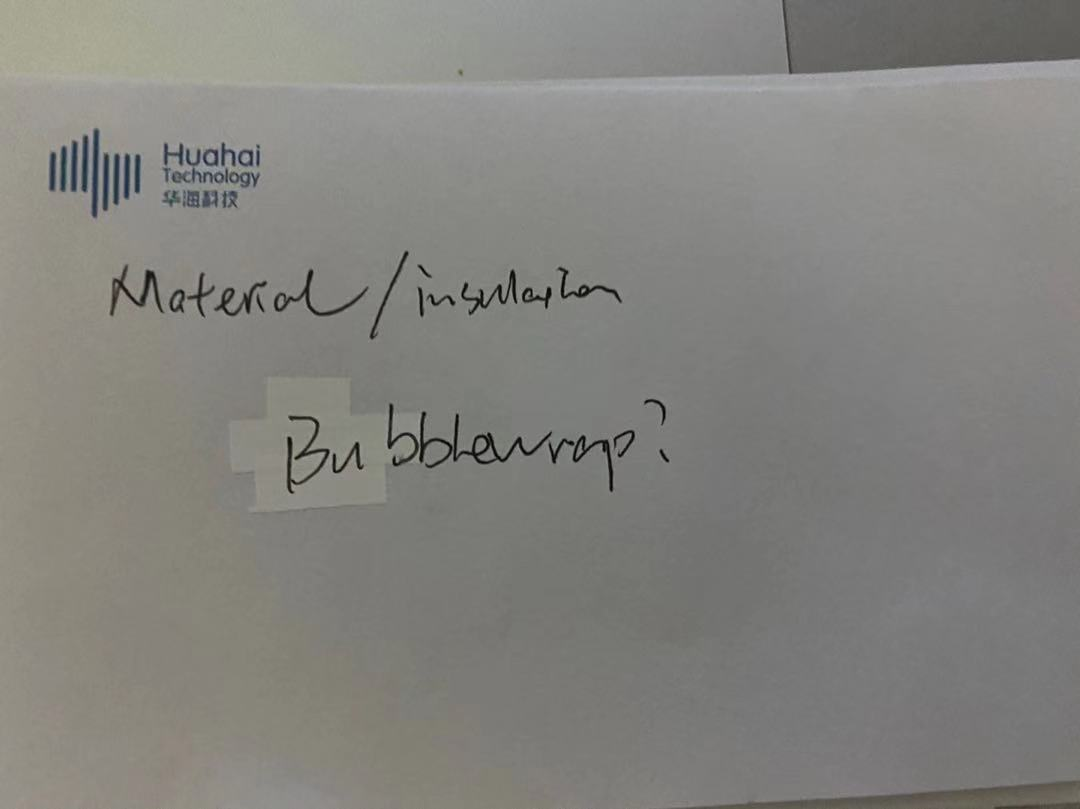 Huahai
Technology
华海科技
Material/insulation
Bubblewrap?